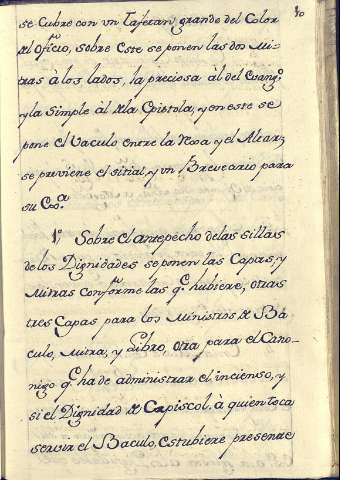 80
se Cubre con un Tafetan grande del Color
del ofizio, sobre Este se ponen las dos Mi-
tras à los lados, la preciosa àl del Evangº
y la simple àl dela Epistola, y en este se
pone el Vaculo entre la Mesa y el Altar;
se previene el sitial, y un Breveario para
su Exª.
1º Sobre el antepecho de las sillas
de los Dignidades se ponen las Capas, y
Mitras conforme las q.e hubiere, otras
tres Capas para los Ministros de Bá-
culo, Mitra, y Libro, otra para el Cano-
nigo q.e ha de administrar el incienso, y
si el Dignidad de Capiscol, à quien toca
servir el Baculo, Estubiere presente